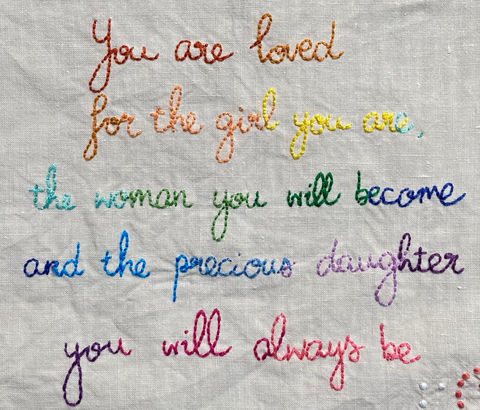 You are loved
for the girl you are,
the woman you will become
and the precious daughter
you will always be